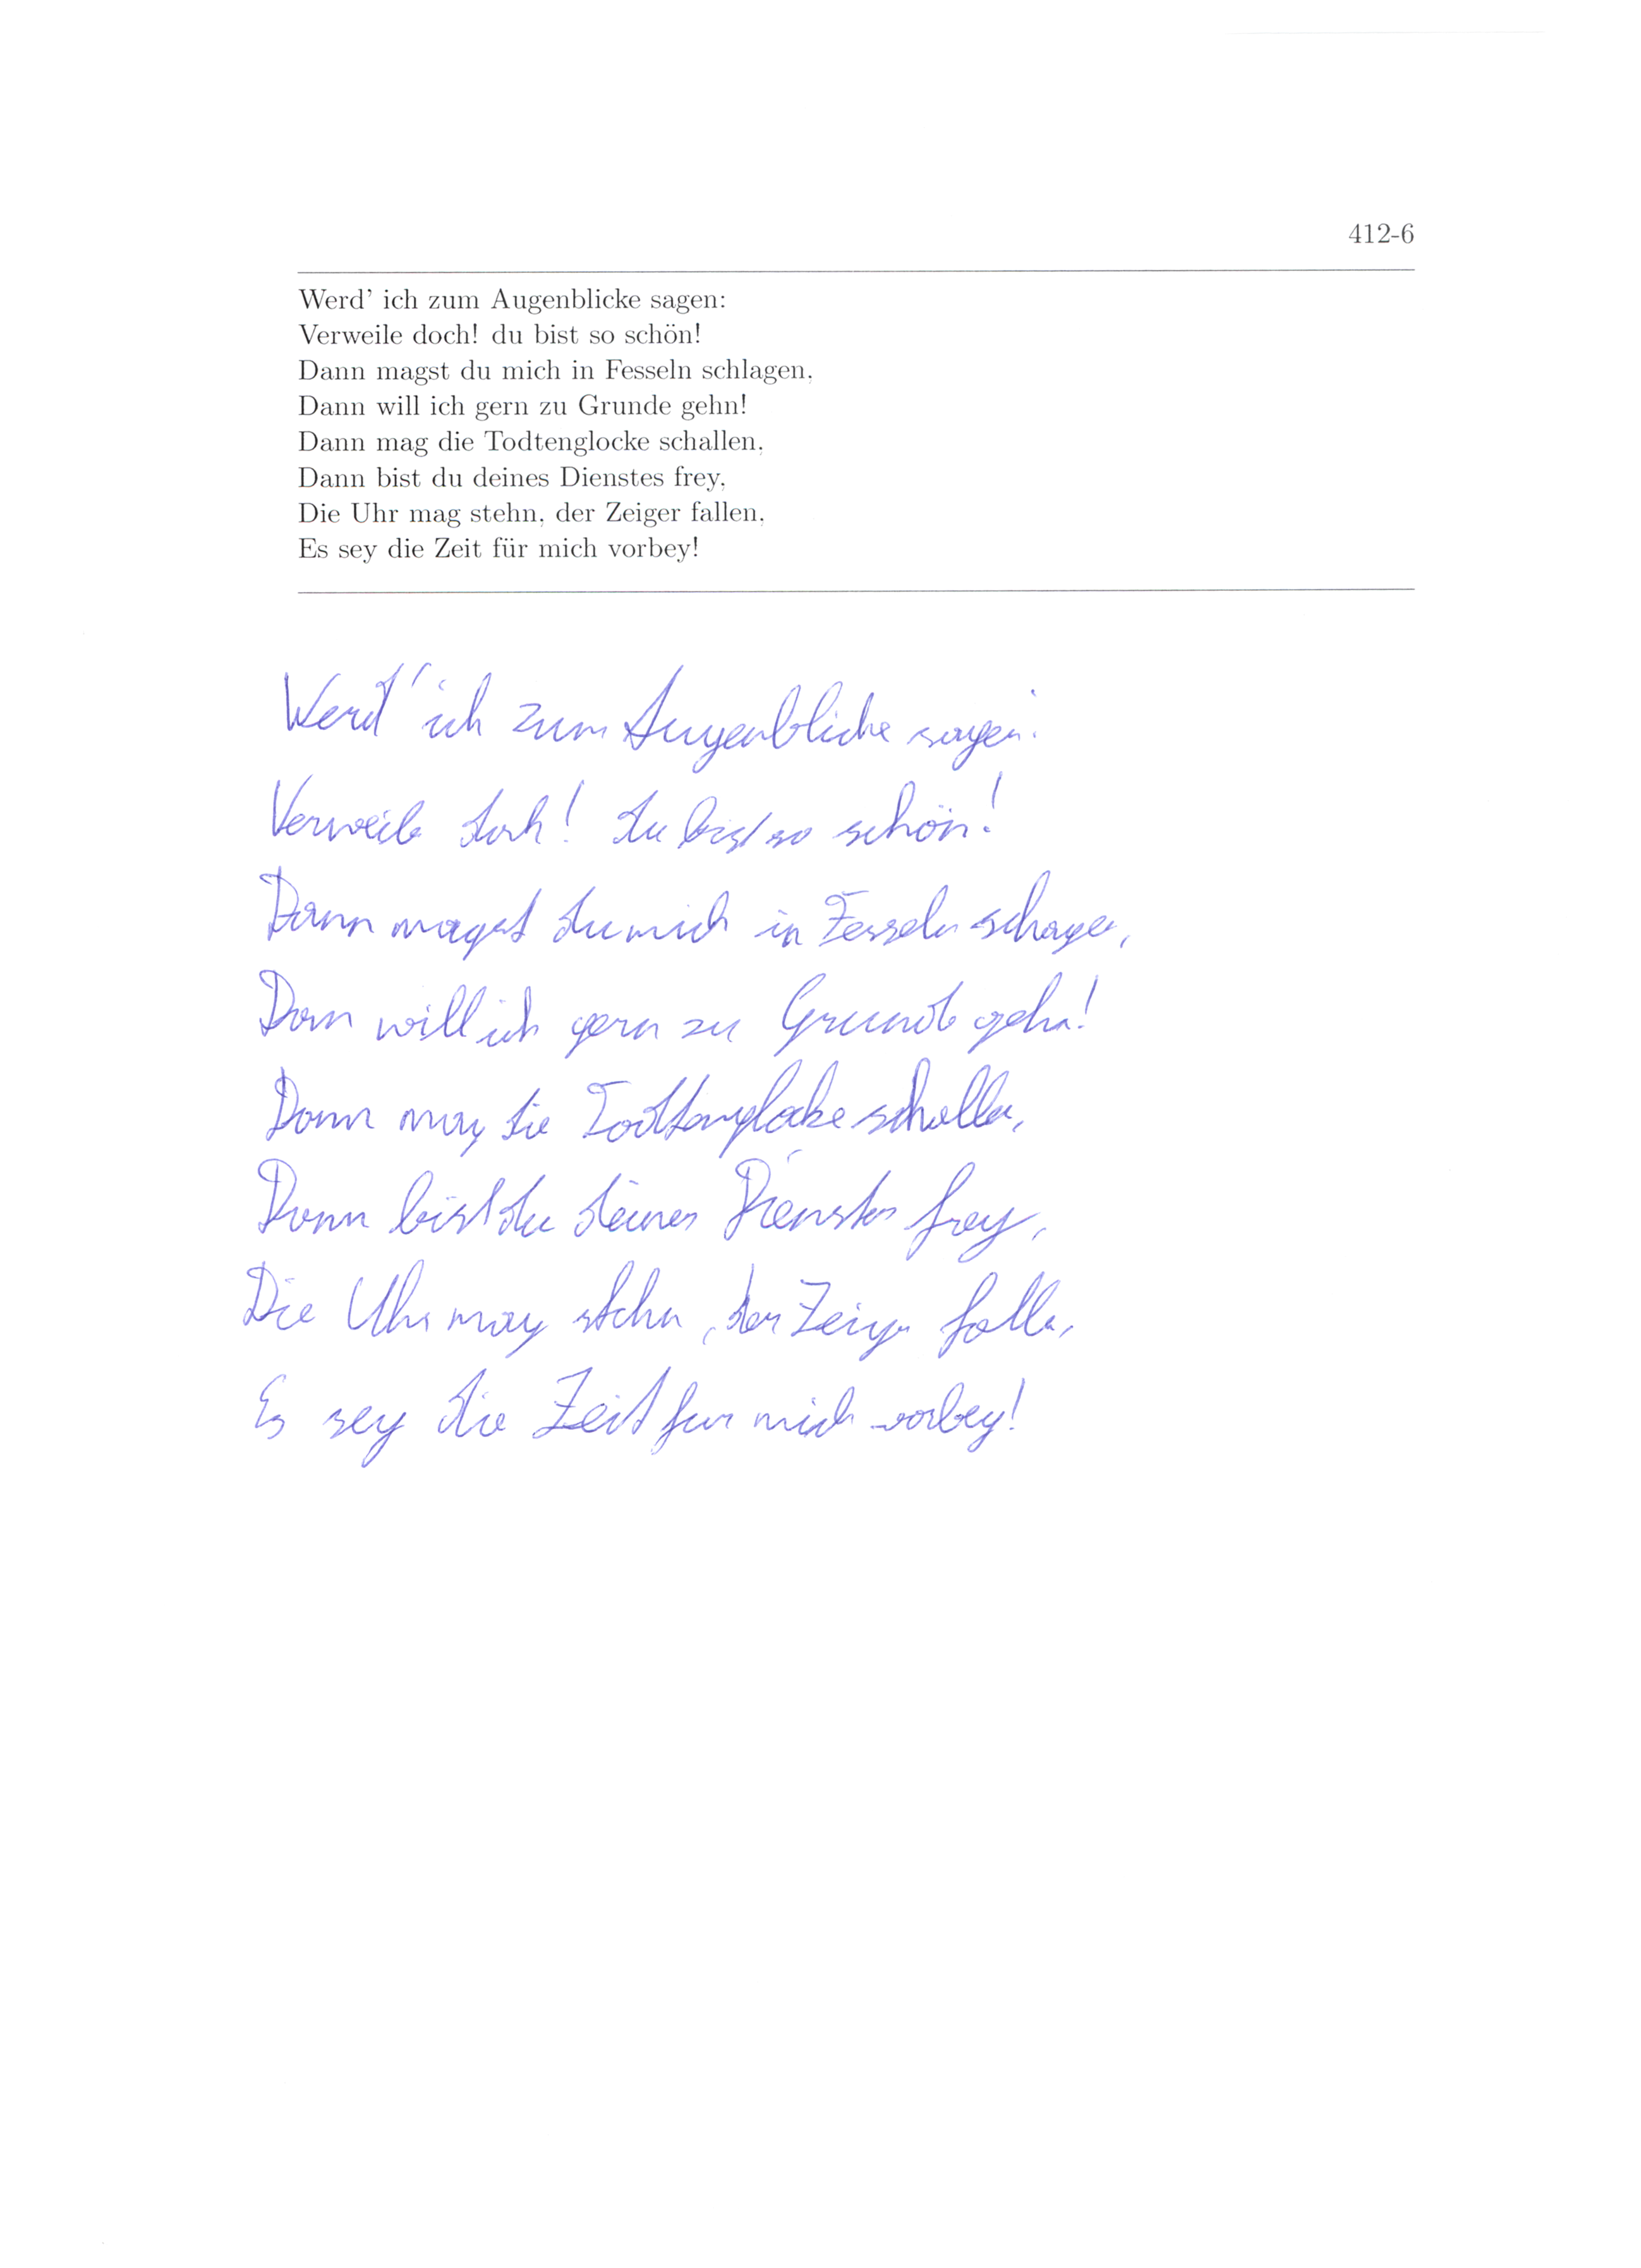 412-6
Werd' ich zum Augenblicke sagen:
Verweile doch! du bist so schön!
Dann magst du mich in Fesseln schlagen,
Dann will ich gern zu Grunde gehn!
Dann mag die Todtenglocke schallen,
Dann bist du deines Dienstes frey,
Die Uhr mag stehn, der Zeiger fallen,
Es sey die Zeit für mich vorbey!
Werd' ich zum Augenblicke sagen:
Verweile doch! du bist so schön!
Dann magst du mich in Fesseln schagen,
Dann will ich gern zu Grunde gehn!
Dann mag die Todtenglocke schallen,
Dann bist du deines Dienstes frey,
Die Uhr mag stehn, der Zeiger fallen,
Es sey die Zeit fur mich vorbey!